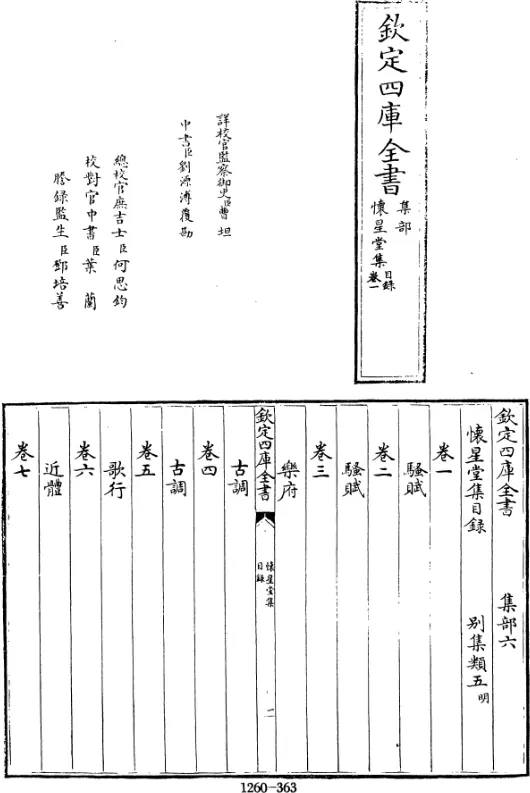 欽定四庫全書
集部
懷星堂集 目錄 卷一
詳校官監察御史臣曹坦
中書臣劉源溥覆勘
總校官庶吉士臣何思鈞
校對官中書臣葉蘭
謄錄監生臣鄧培善
欽定四庫全書 集部六
懷星堂集目錄 別集類五 明
卷一
騷賦
卷二
騷賦
卷三
樂府
欽定四庫全書 懷星堂集 目錄 一
古調
卷四
古調
卷五
歌行
卷六
近體
卷七
1260-363